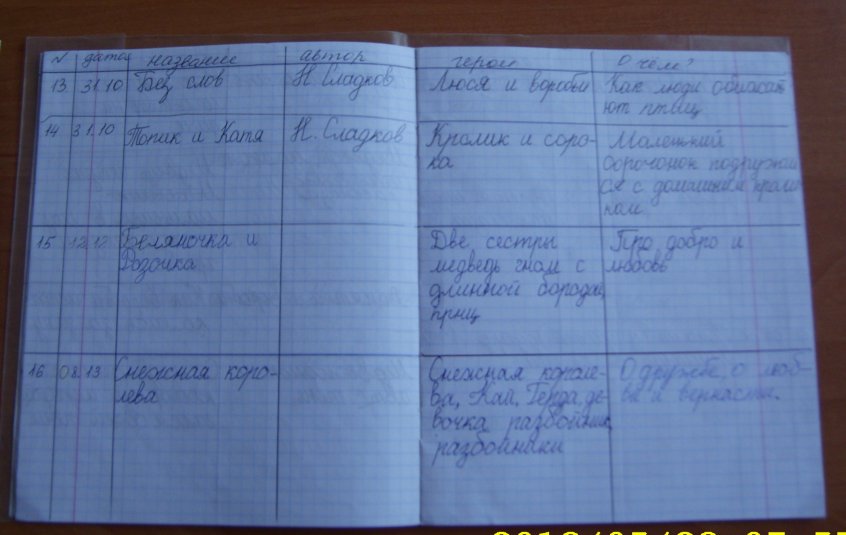 N дата название автор герои О чём?
13 31.10 Без слов Н. Сладков Люся и воробьи Как люди обижа
ют птиц
14 31.10 Топик и Катя Н. Сладков Кролик и соро-
ка
Маленький
сорочонок подружил
ся с домашним кроли
ком.
15 12.12 Беляночка и
Розочка
Две сестры
медведь гном с
длинной бородой,
принц
Про добро и
любовь
16 08.13 Снежная коро-
лева
Снежная короле-
ва, Кай, Герда, де-
вочка разбойник,
разбойники
О дружбе, о люб-
ви и верности.